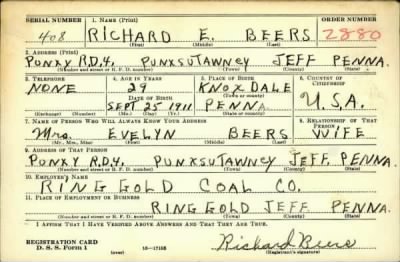 SERIAL NUMBER 1. NAME (Print) ORDER NUMBER
408 RICHARD E. BEERS 2880
(First) (Middle) (Last)
2. ADDRESS (Print)
PUNXY R.D.4. PUNXSUTAWNEY JEFF PENNA.
(Number and street or R. F. D. number) (Town) (County) (State)
3. TELEPHONE 4. AGE IN YEARS 5. PLACE OF BIRTH 6. COUNTRY OF CITIZENSHIP
NONE 29 KNOX DALE
DATE OF BIRTH (Town or county) U.S.A.
SEPT 25 1911 PENNA.
(Mo.) (Day) (Yr.) (State or country)
7. NAME OF PERSON WHO WILL ALWAYS KNOW YOUR ADDRESS 8. RELATIONSHIP OF THAT PERSON
Mrs. EVELYN BEERS WIFE
(Mr., Mrs., Miss) (First) (Middle) (Last)
9. ADDRESS OF THAT PERSON
PUNXY R.D.4. PUNXSUTAWNEY JEFF. PENNA.
(Number and street or R. F. D. number) (Town) (County) (State)
10. EMPLOYER'S NAME
RINGGOLD COAL CO.
11. PLACE OF EMPLOYMENT OR BUSINESS
RINGGOLD JEFF PENNA.
(Number and street or R. F. D. number) (Town) (County) (State)
I AFFIRM THAT I HAVE VERIFIED ABOVE ANSWERS AND THAT THEY ARE TRUE.
REGISTRATION CARD
D. S. S. Form 1 (over) 16—17105 Richard Beers
(Registrant's signature)